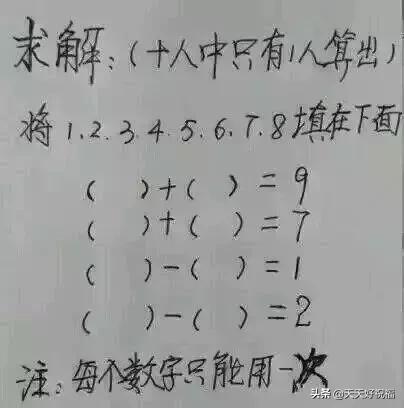 求解:(十人中只有1人算出)
将1.2.3.4.5.6.7.8填在下面
(  )+(  )=9
(  )+(  )=7
(  )-(  )=1
(  )-(  )=2
注:每个数字只能用一次
头条@天天好祝福